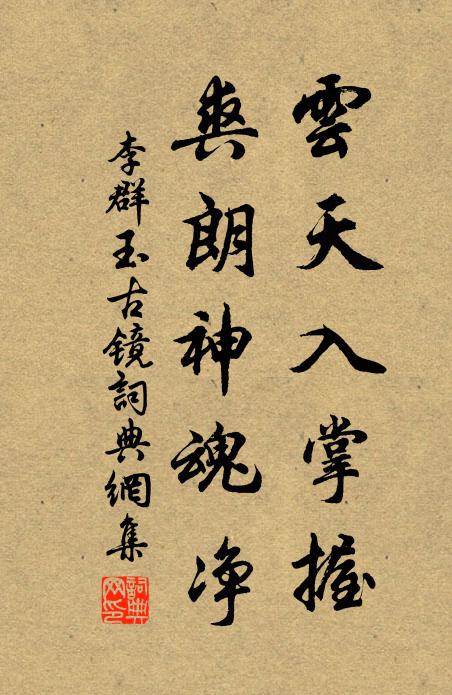 雲天入掌握
爽朗神魂净
李群玉古镜詞典網集
詞典网印